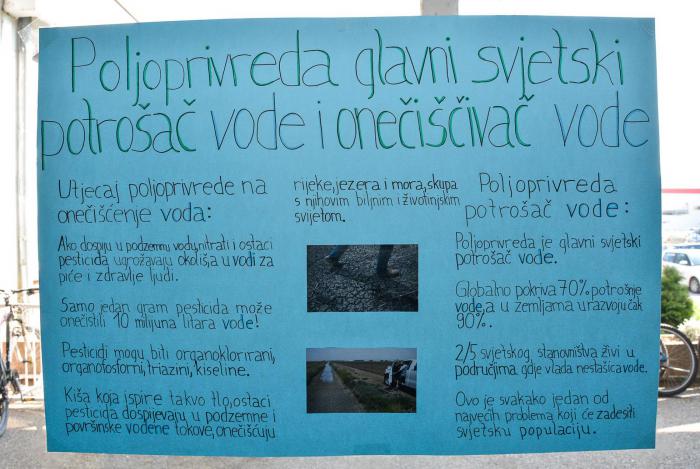 Poljoprivreda glavni svjetski
potrošač vode i onečiščivač vode
Utjecaj poljoprivrede na
onečišćenje voda:
Ako dospiju u podzemnu vodu, nitrati i ostaci
pesticida ugrožavaju okoliš, a u vodi za
piće i zdravlje ljudi.
Samo jedan gram pesticida može
onečistiti 10 milijuna litara vode!
Pesticidi mogu biti organoklorirani,
organofosforni, triazini, kiseline.
Kiša koja ispire takvo tlo, ostaci
pesticida dospijevaju u podzemne i
površinske vodene tokove, onečišćuju
rijeke, jezera i mora, skupa
s njihovim biljnim i životinjskim
svijetom.
Poljoprivreda
potrošač vode:
Poljoprivreda je glavni svjetski
potrošač vode.
Globalno pokriva 70% potrošnje
vode, a u zemljama u razvoju čak
90%.
2/5 svjetskog stanovništva živi u
područjima gdje vlada nestašica vode.
Ovo je svakako jedan od
najvećih problema koji će zadesiti
svjetsku populaciju.